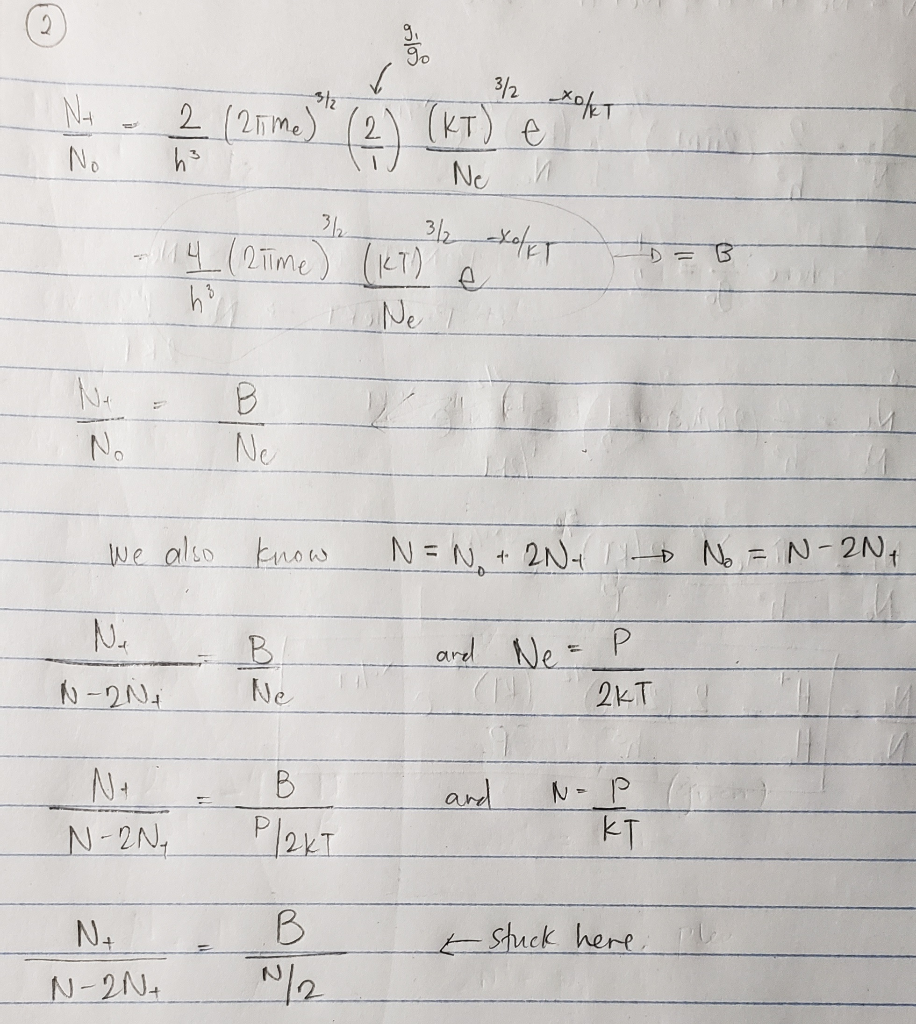 2
g₁/g₀
N+/N₀ = 2/h³ (2πme)^3/2 (2/1) (KT)^3/2/Ne e^-x₀/kT
= 4/h³ (2πme)^3/2 (KT)^3/2/Ne e^-x₀/kT → = B
N+/N₀ = B/Ne
We also know N = N₀ + 2N+ → N₀ = N-2N+
N+/N-2N+ = B/Ne and Ne = P/2KT
N+/N-2N+ = B/P/2KT and N = P/KT
N+/N-2N+ = B/N/2 ← stuck here.